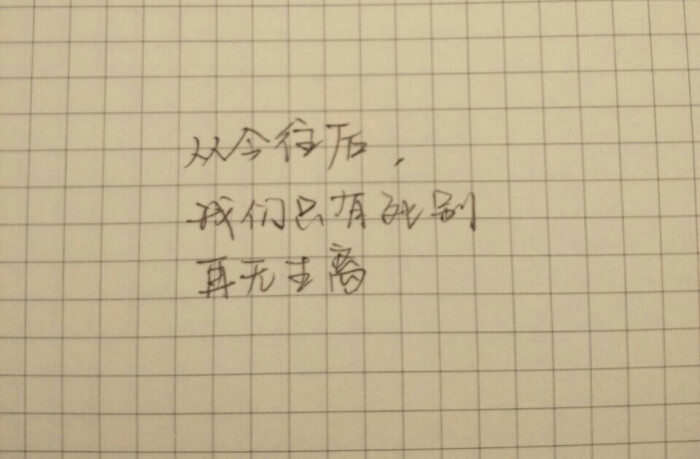 从今往后,
我们只有死别
再无生离